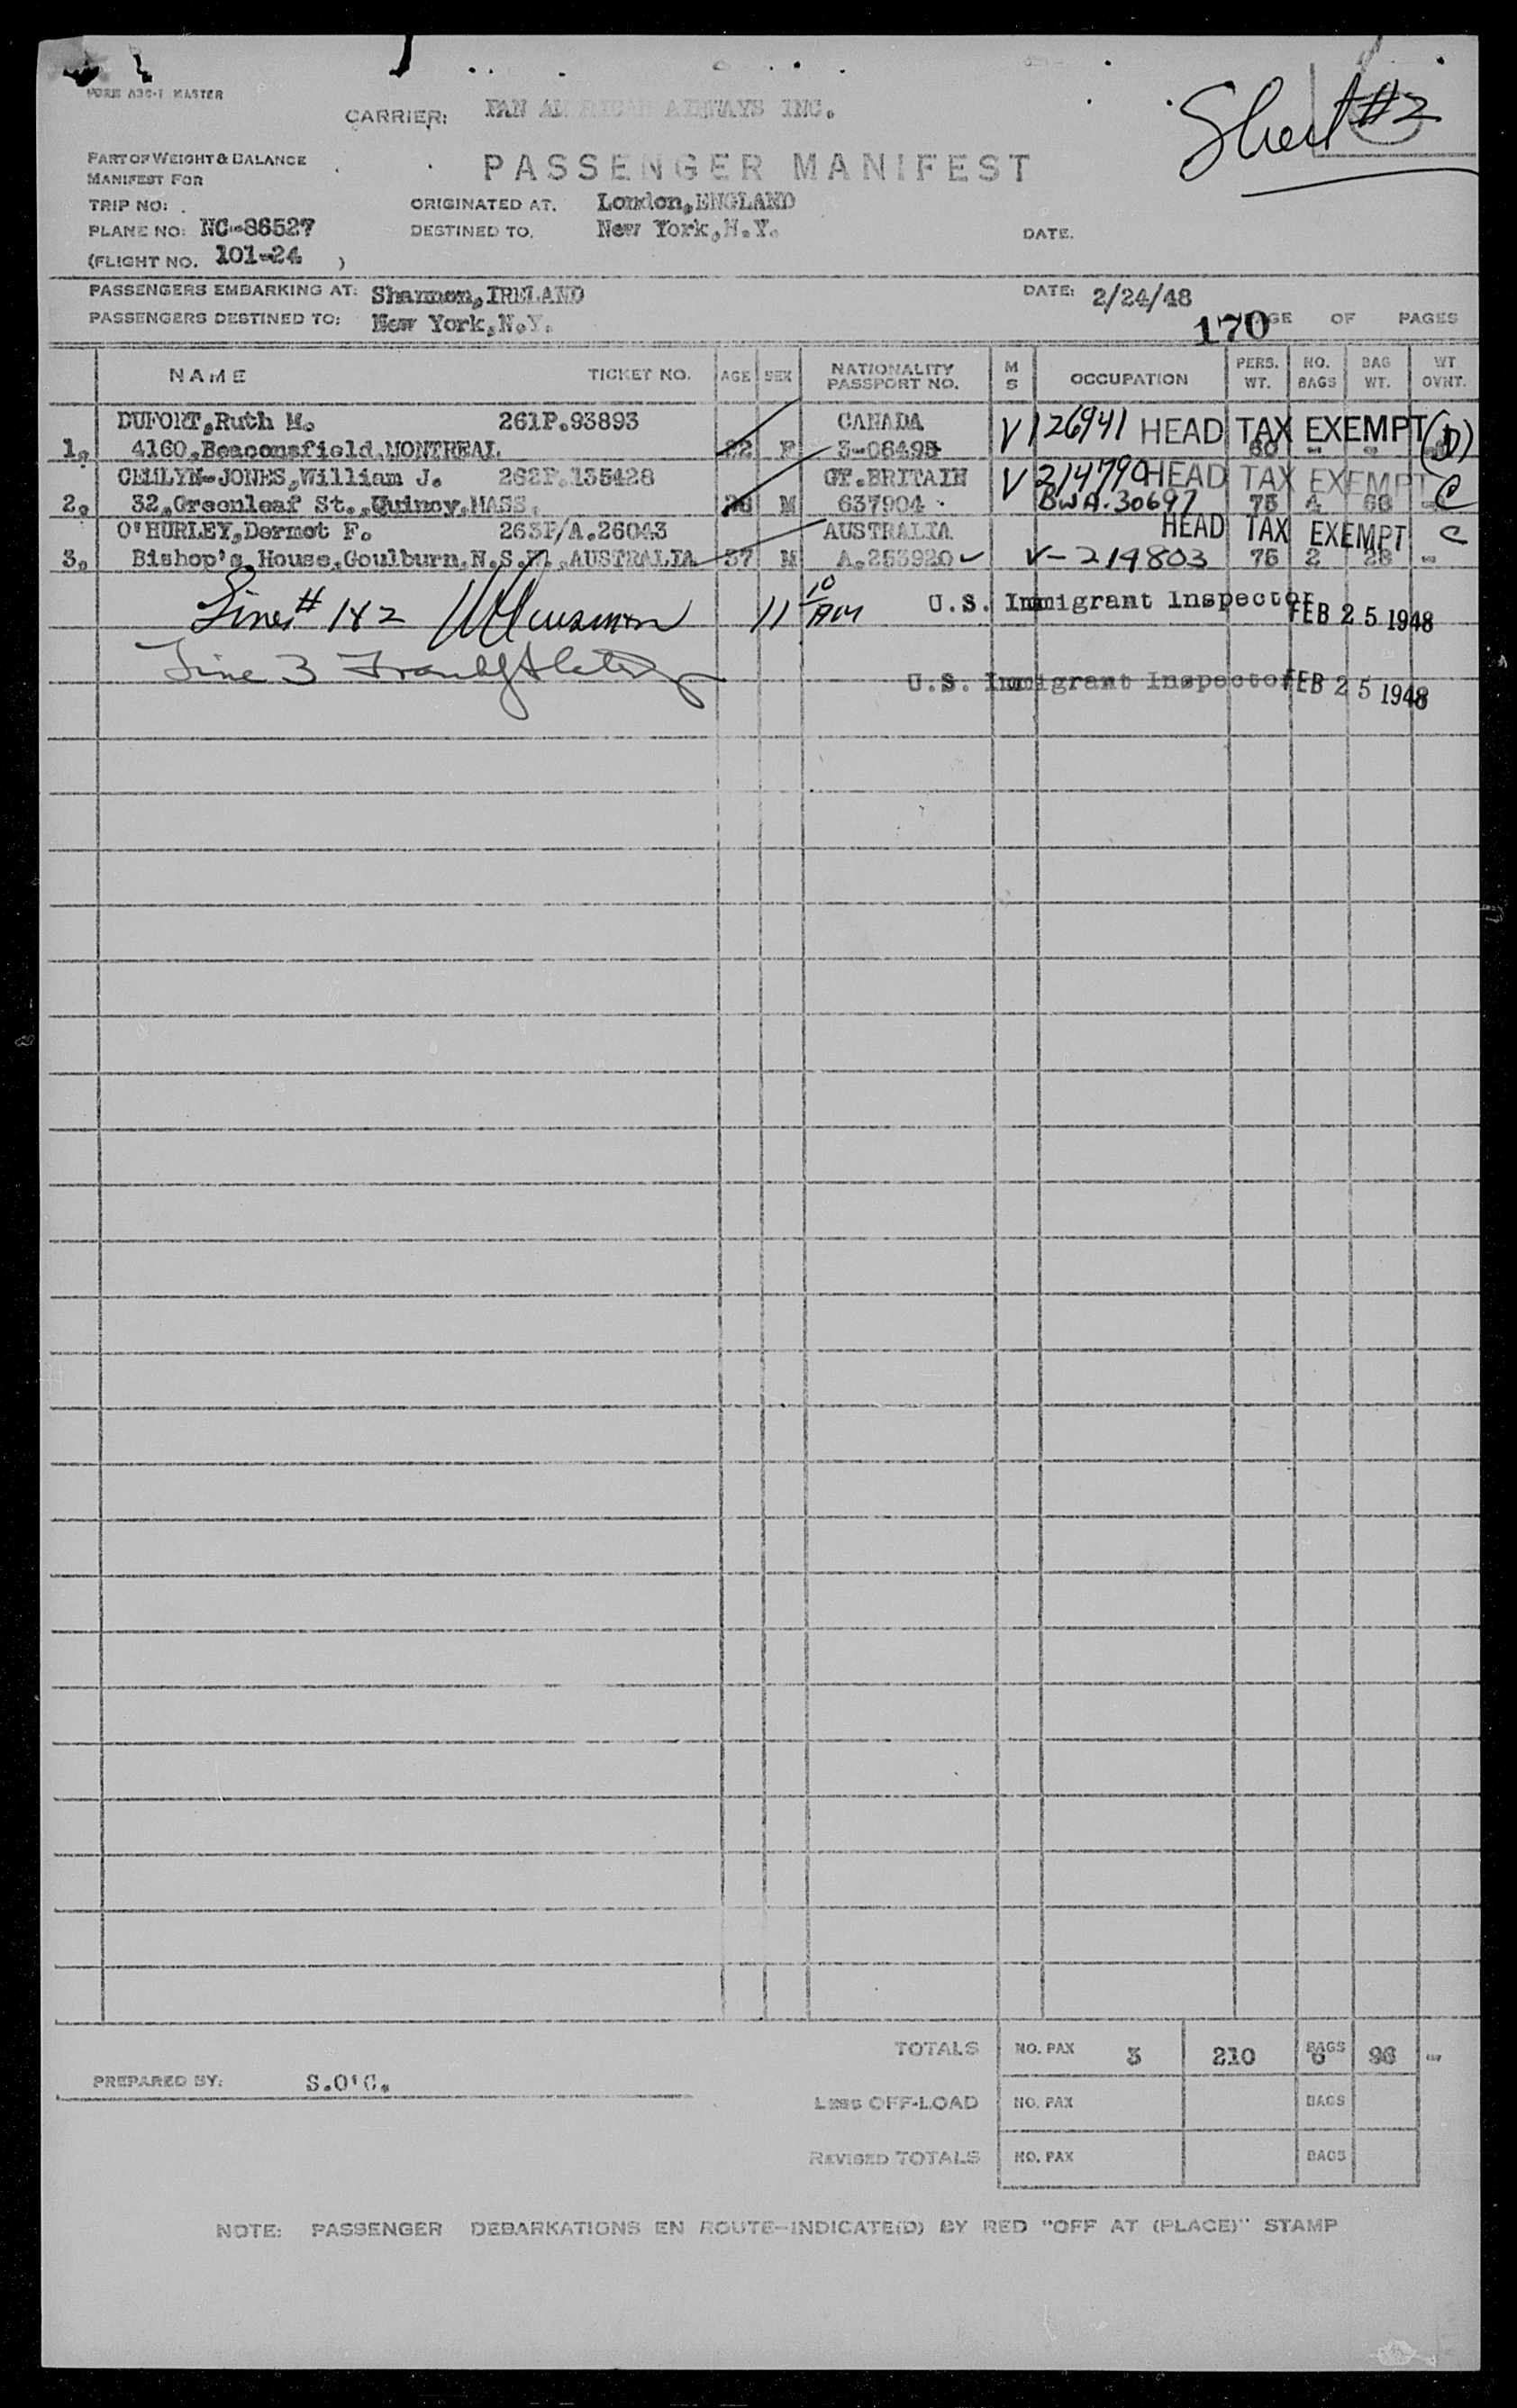 FORM ABC-1 MASTER
CARRIER: PAN AMERICAN AIRWAYS INC.
Sheet #2
PART OF WEIGHT & BALANCE
MANIFEST FOR
PASSENGER MANIFEST
TRIP NO: ORIGINATED AT. London,ENGLAND
PLANE NO: NC-86527 DESTINED TO. New York,N.Y. DATE.
(FLIGHT NO. 101-24 )
PASSENGERS EMBARKING AT: Shannon,IRELAND DATE: 2/24/48
PASSENGERS DESTINED TO: New York,N.Y. 170 GE OF PAGES
NAME TICKET NO. AGE SEX NATIONALITY PASSPORT NO. M S OCCUPATION PERS. WT. NO. BAGS BAG WT. WT OVNT.
DUFORT,Ruth M. 261P.93893 CANADA V126941 HEAD TAX EXEMPT (D)
1. 4160,Beaconsfield,MONTREAL 22 F 60 - -
CEMLYN-JONES,William J. 262P.135428 GT.BRITAIN V214790 HEAD TAX EXEMPT C
2. 32,Greenleaf St.,Quincy,MASS. M 637904 BWA.30697 75 4 68 -
O'HURLEY,Dermot F. 263P/A.26043 AUSTRALIA HEAD TAX EXEMPT C
3. Bishop's House,Goulburn,N.S.W.,AUSTRALIA 37 M A.253920 V-214803 75 2 28 -
Lines # 1&2 11 10 AM U.S. Immigrant Inspector FEB 25 1948
Line 3 U.S. Immigrant Inspector FEB 25 1948
TOTALS NO. PAX 3 210 BAGS 6 96 -
PREPARED BY: S.O'C.
LESS OFF-LOAD NO. PAX BAGS
REVISED TOTALS NO. PAX BAGS
NOTE: PASSENGER DEBARKATIONS EN ROUTE-INDICATE(D) BY RED "OFF AT (PLACE)" STAMP